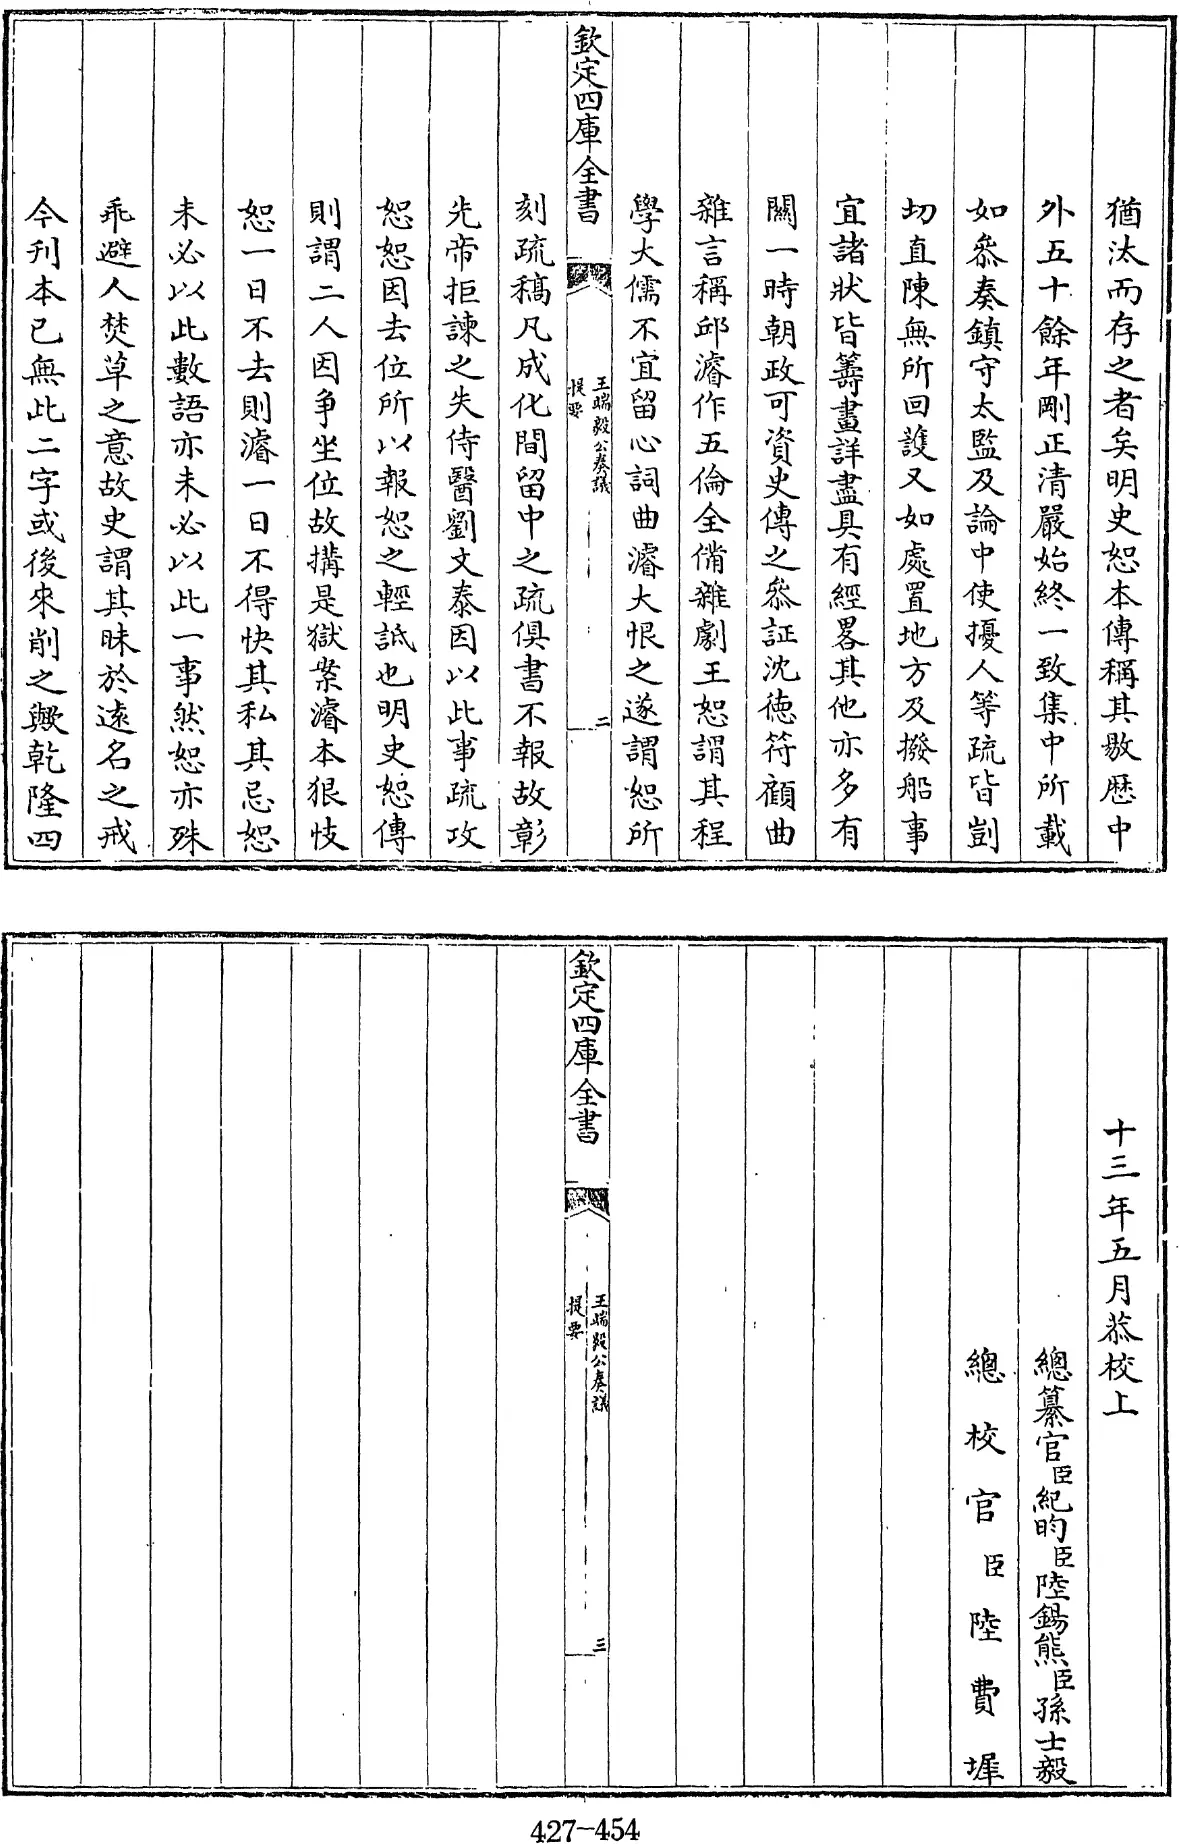 猶汰而存之者矣明史恕本傳稱其敭歷中
外五十餘年剛正清嚴始終一致集中所載
如叅奏鎮守太監及論中使擾人等疏皆剴
切直陳無所回護又如處置地方及撥船事
宜諸狀皆籌畫詳盡具有經畧其他亦多有
關一時朝政可資史傳之叅証沈徳符顧曲
雜言稱邱濬作五倫全備雜劇王恕謂其程
學大儒不宜留心詞曲濬大恨之遂謂恕所
欽定四庫全書
王端毅公奏議
提要
二
刻疏稿凡成化間留中之疏俱書不報故彰
先帝拒諫之失侍醫劉文泰因以此事疏攻
恕恕因去位所以報恕之輕詆也明史恕傳
則謂二人因争坐位故搆是獄案濬本狠忮
恕一日不去則濬一日不得快其私其忌恕
未必以此數語亦未必以此一事然恕亦殊
乖避人焚草之意故史謂其昧於逺名之戒
今刋本已無此二字或後來削之歟乾隆四
十三年五月恭校上
總纂官臣紀昀臣陸錫熊臣孫士毅
總校官臣陸費墀
欽定四庫全書
王端毅公奏議
提要
三
427-454